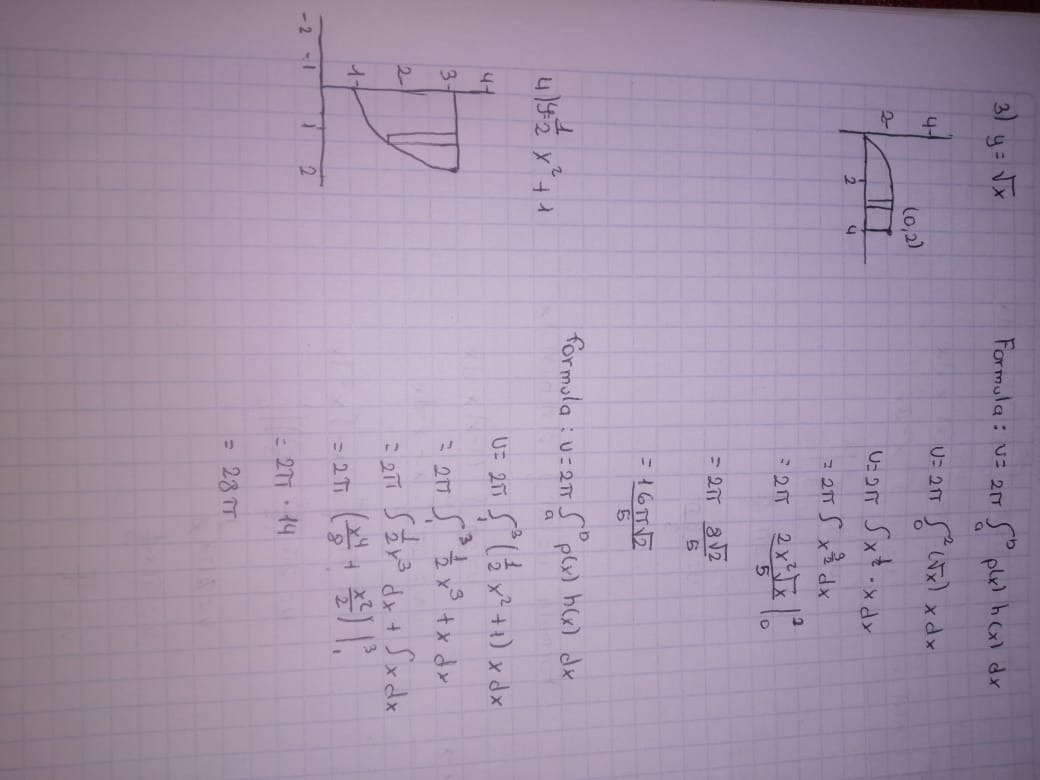 3) y = √x
4
2
2
4
(0,2)
Formula: v = 2π ∫ₐᵇ p(x) h(x) dx
v = 2π ∫₀² (√x) x dx
v = 2π ∫ x^½ · x dx
= 2π ∫ x^(3/2) dx
= 2π 2x²√x/5 |₀²
= 2π 8√2/5
= 16π√2/5
4) y = 1/2 x² + 1
4
3
2
1
-2 -1 1 2
formula: v = 2π ∫ₐᵇ p(x) h(x) dx
v = 2π ∫₁³ (1/2 x² + 1) x dx
= 2π ∫₁³ 1/2 x³ + x dx
= 2π ∫ 1/2 x³ dx + ∫ x dx
= 2π (x⁴/8 + x²/2) |₁³
= 2π · 14
= 28π